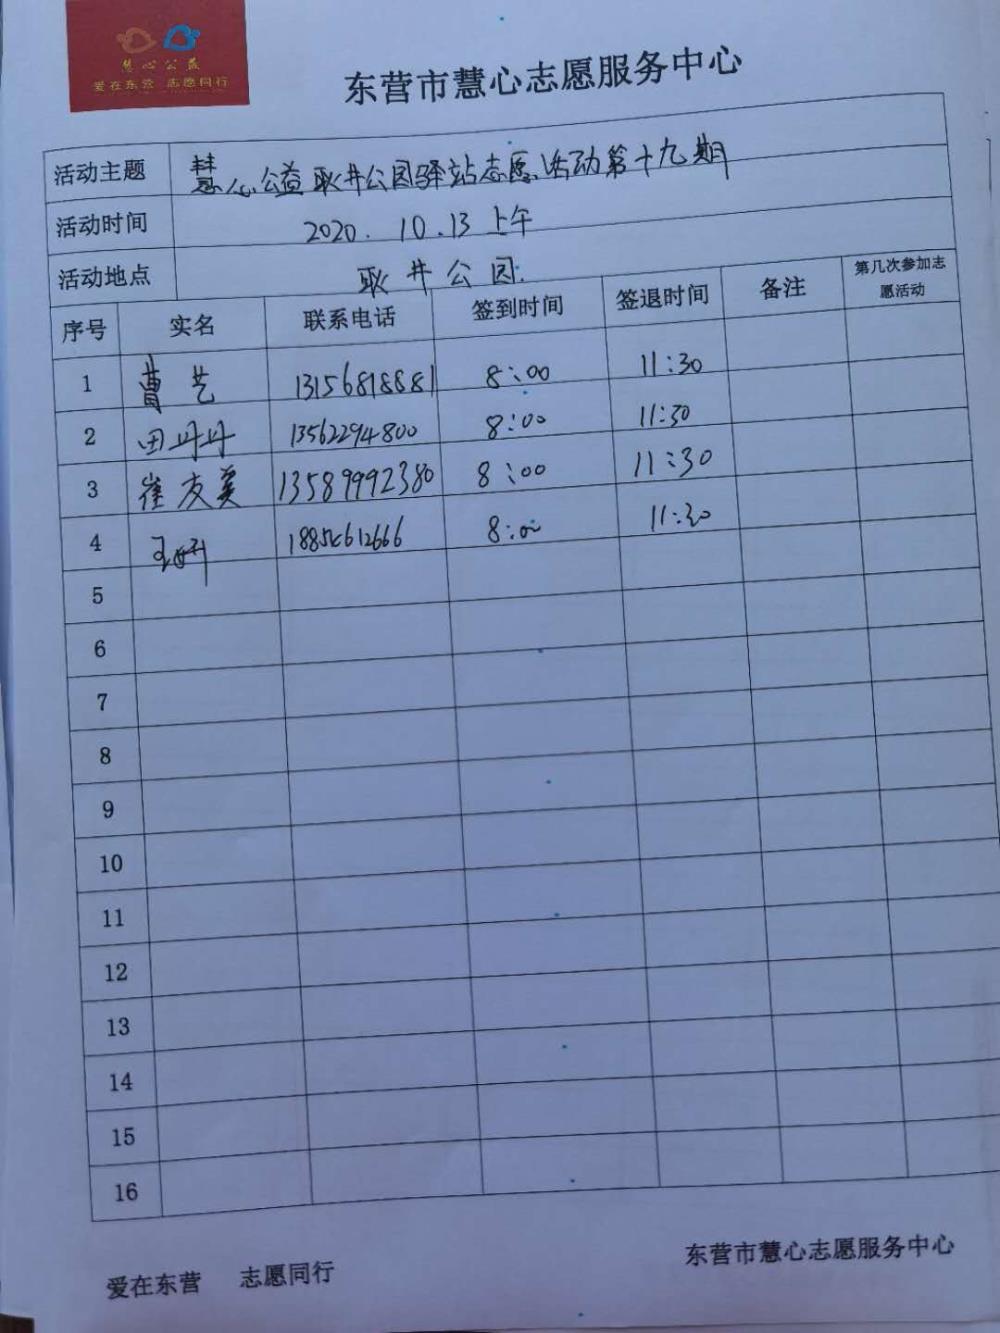 慧心公益
爱在东营 志愿同行
东营市慧心志愿服务中心
活动主题 慧心公益耿井公园驿站志愿活动第十九期
活动时间 2020.10.13上午
活动地点 耿井公园.
序号 实名 联系电话 签到时间 签退时间 备注 第几次参加志
愿活动
1 曹艺 13156818881 8:00 11:30
2 田丹丹 13562294800 8:00 11:30
3 崔友美 13589992380 8:00 11:30
4 8:00 11:30
5
6
7
8
9
10
11
12
13
14
15
16
爱在东营 志愿同行 东营市慧心志愿服务中心